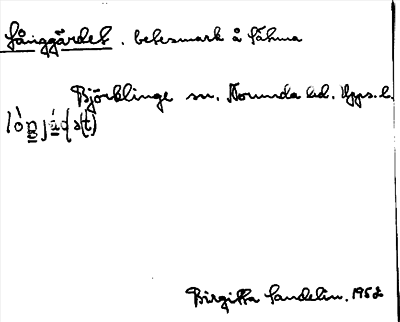 Långgärdet. betesmark å Såhma
Björklinge sn. Norunda hd. Upps. l.
Birgitta Sandelin. 1952